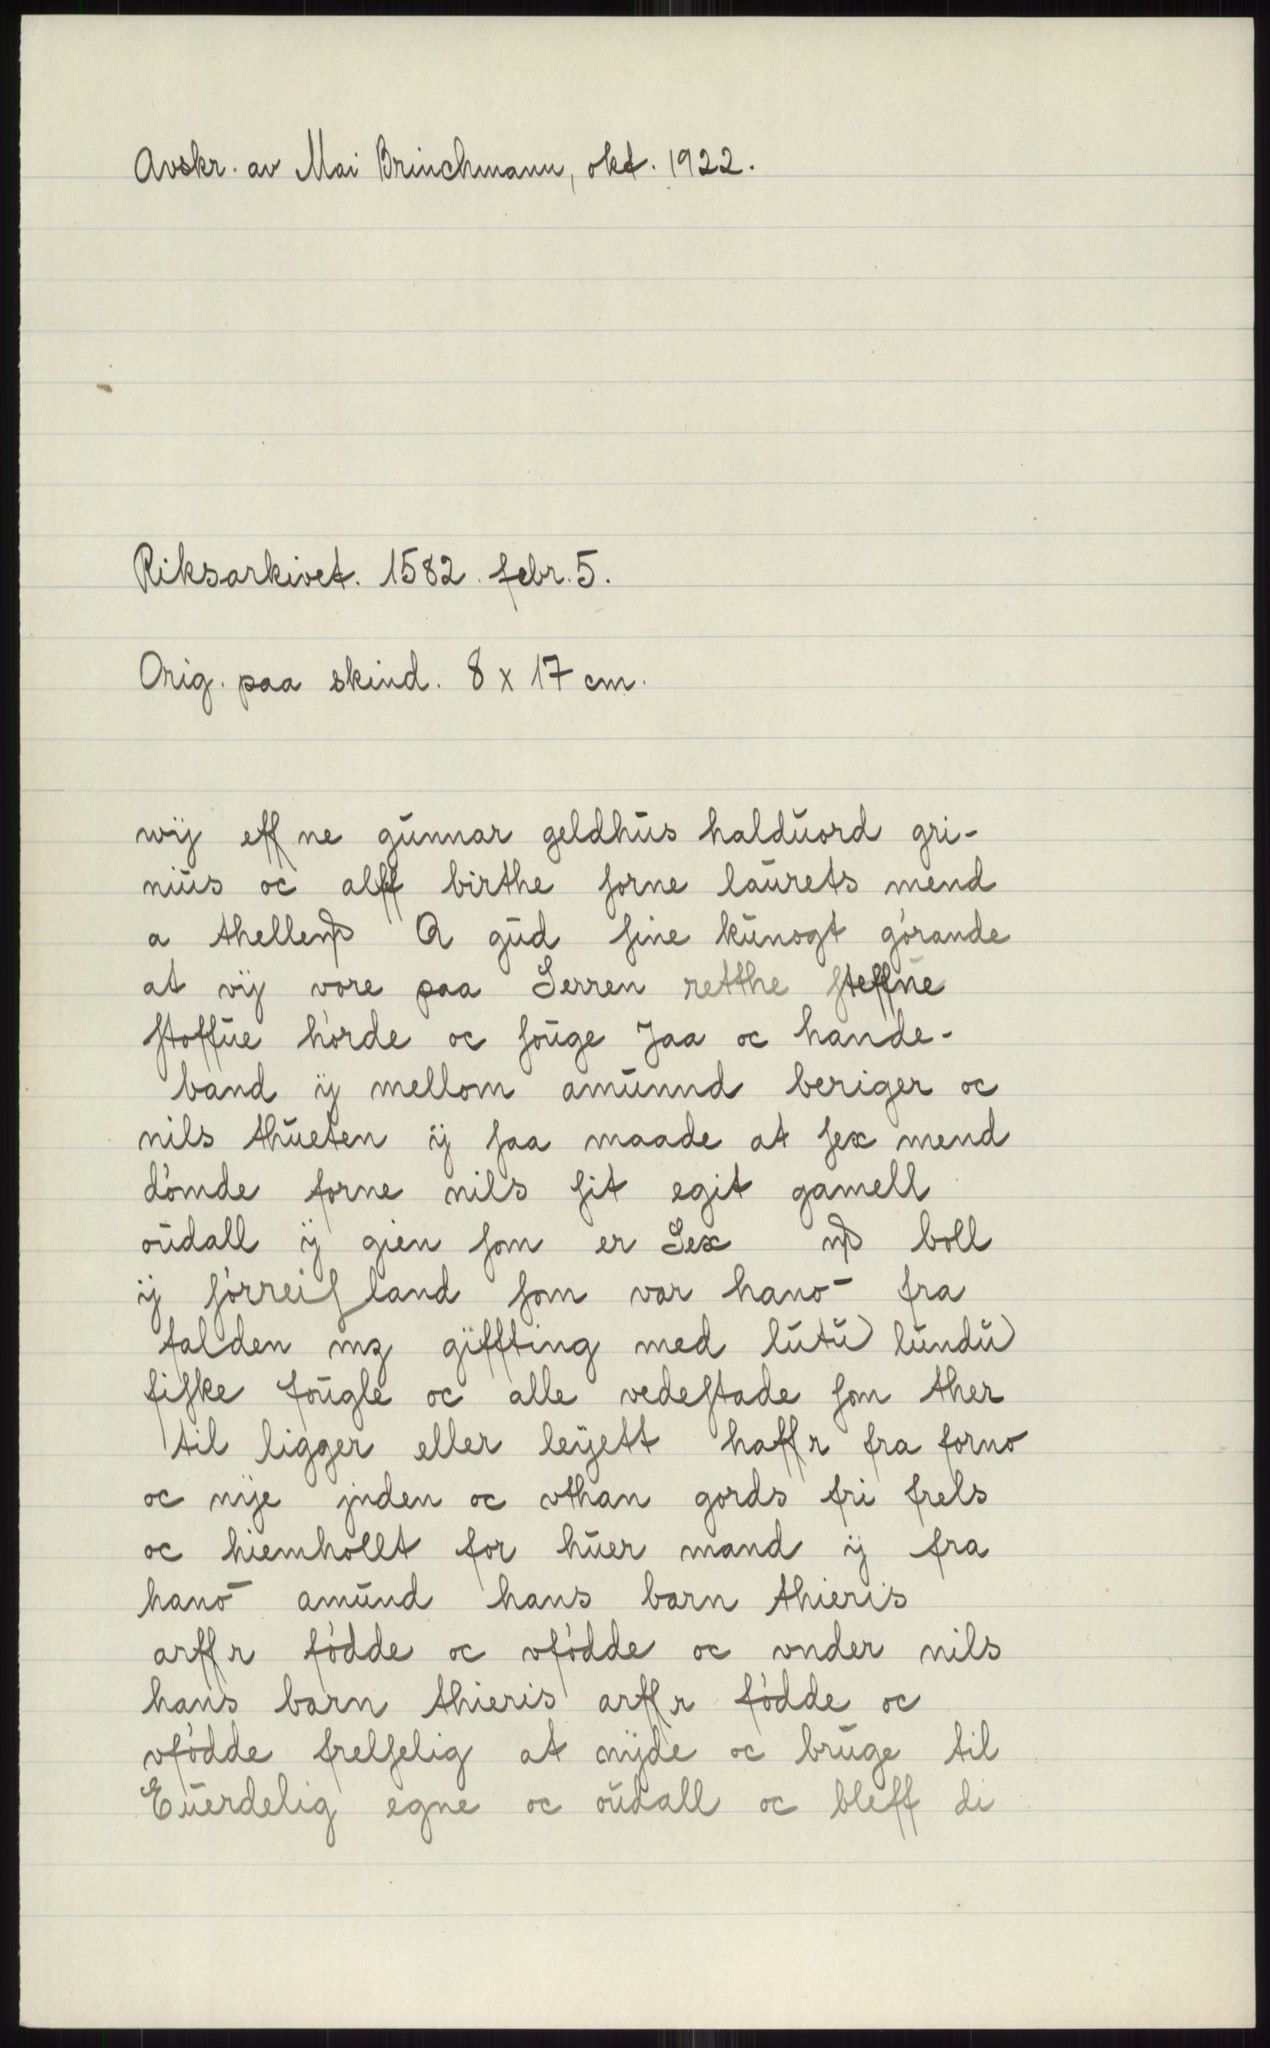 Avskr. av Mai Brinchmann, okt. 1922.
Riksarkivet. 1582. febr. 5.
Orig. paa skind. 8 x 17 cm.
wij effne gunnar geldhus halduord gri-
nius oc alff birthe sorne laurets mend
a thellem Q gud sine kunogt górande
at vij vore paa Serren retthe steffne
stoffue hórde oc souge Jaa oc hande-
band ij mellom amunnd beriger oc
nils thueten ij saa maade at sex mend
dómde forne nils sit egit gamell
oudall ij gien som er Sex boll
ij sórreisland som var hano- fra
falden mz giffting med lutu lundu
fiske fougle oc alle vedestade som ther
til ligger eller leyett haffr fra forno
oc nije jnden oc vthan gords fri frels
oc hiemhollt for huer mand ij fra
hano- amund hans barn thieris
arffr fódde oc vfódde oc vnder nils
hans barn thieris arffr fódde oc
vfódde frelselig at nyde oc bruge til
Euerdelig egne oc oudall oc bleff di